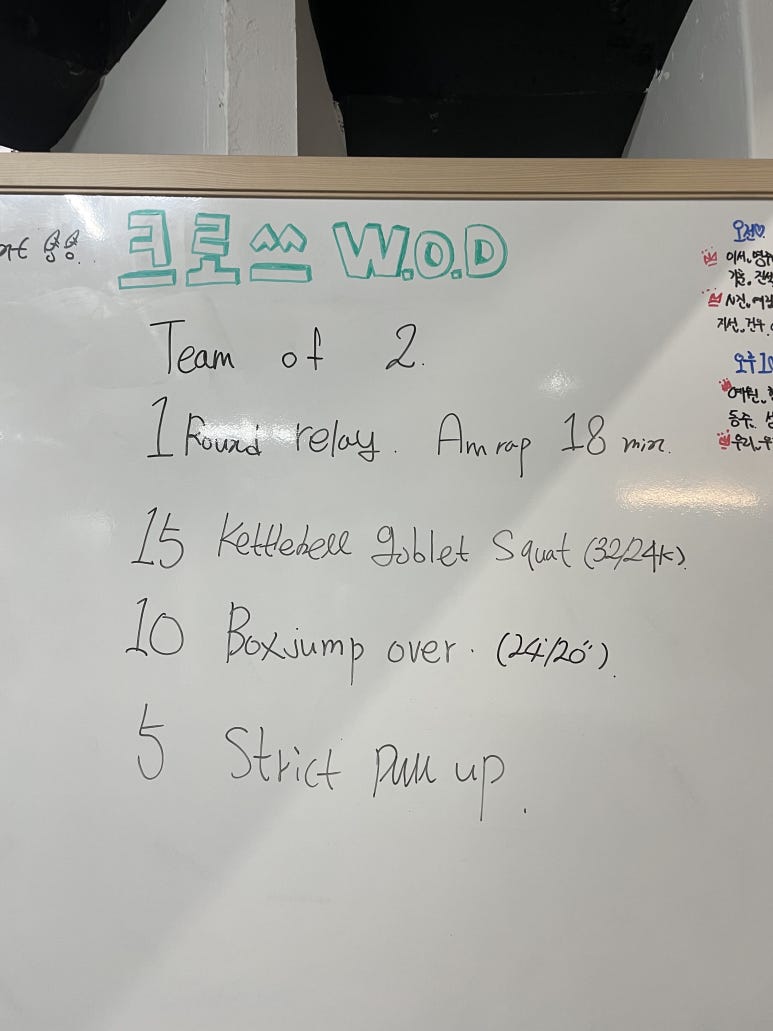 크로쓰 W.O.D
Team of 2.
1 Round relay. Amrap 18 min.
15 Kettlebell goblet Squat (32/24K).
10 Box jump over. (24"/20").
5 Strict pull up.
오전♡
이서, 영주
시진, 여림
지선, 건우
오후 1
예원,
동주,
우리, 우